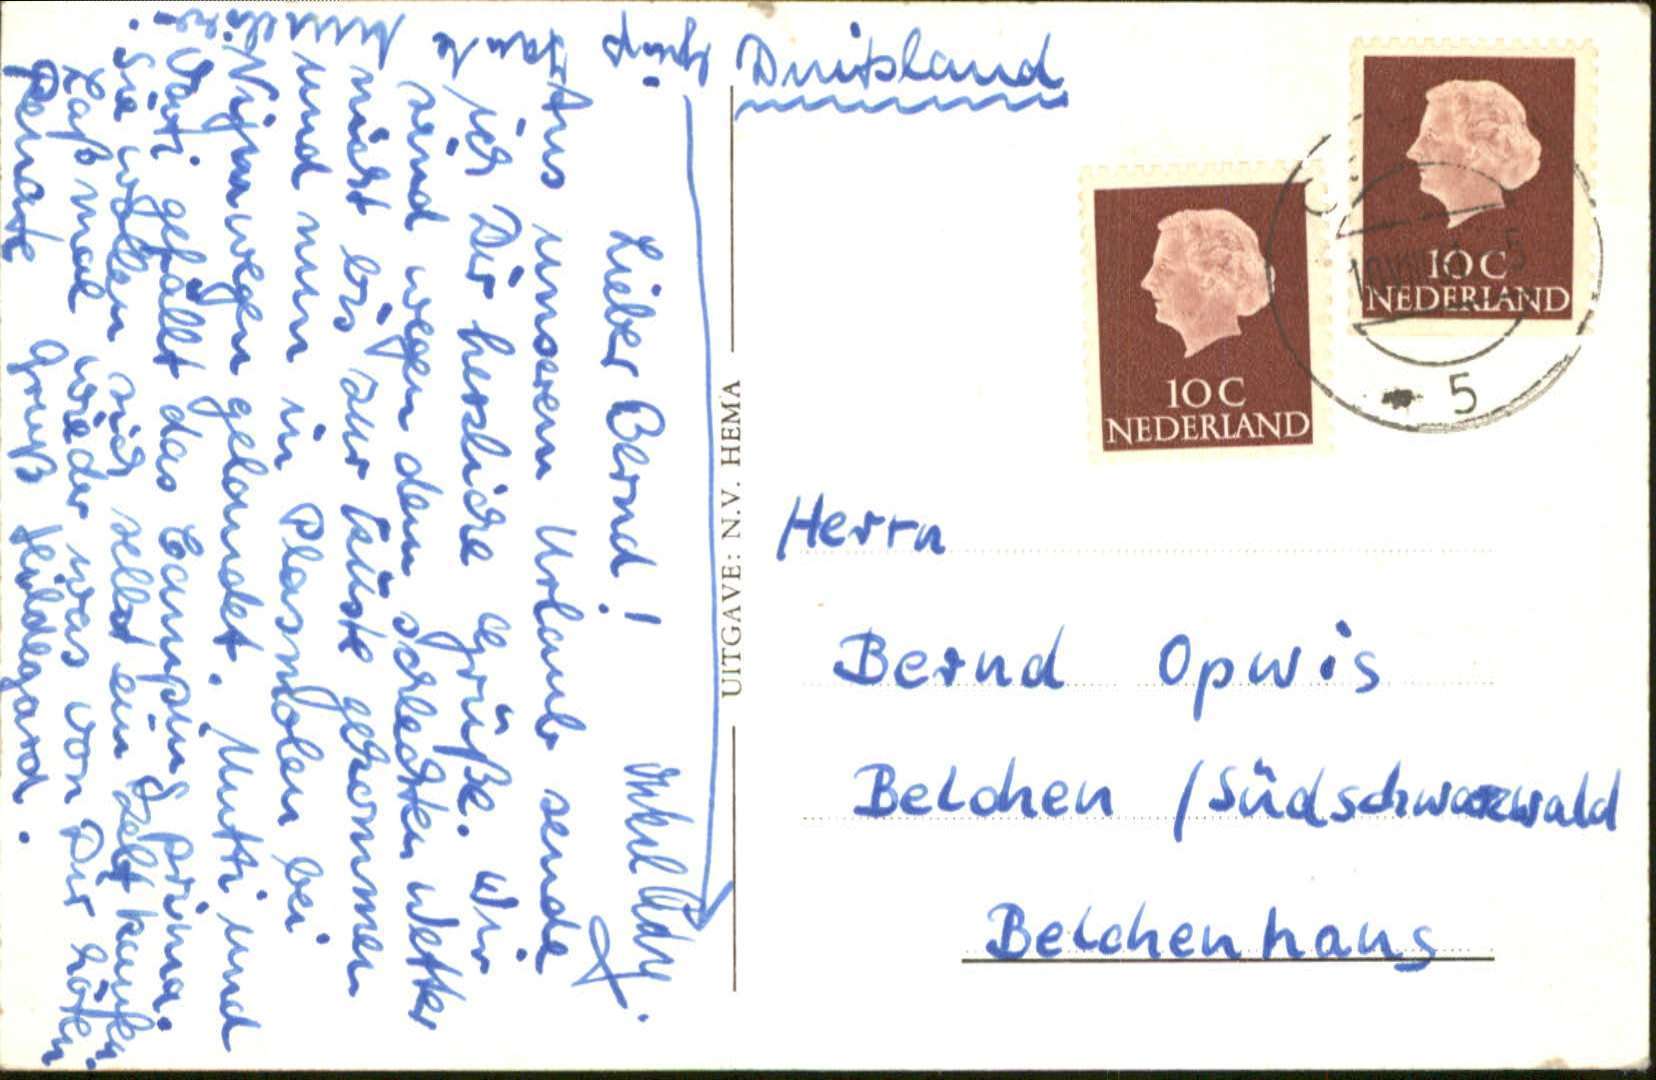 Lieber Bernd!
Aus unserem Urlaub sende
ich Dir herzliche Grüße. Wir
sind wegen dem schlechten Wetter
nicht bis zur Küste gekommen
und nun in Plasmolen bei
Nijmwegen gelandet. Mutti und
Vati gefällt das Camping prima.
Sie wollen sich selbst ein Zelt kaufen.
Laß mal wieder was von Dir hören.
Renate Gruß Hildegard.
Gruß Tante
Onkel Ady.
UITGAVE: N.V. HEMA
Duitsland
10 C
NEDERLAND
10 C
NEDERLAND
5
Herrn
Bernd Opwis
Belchen / Südschwarzwald
Belchenhaus